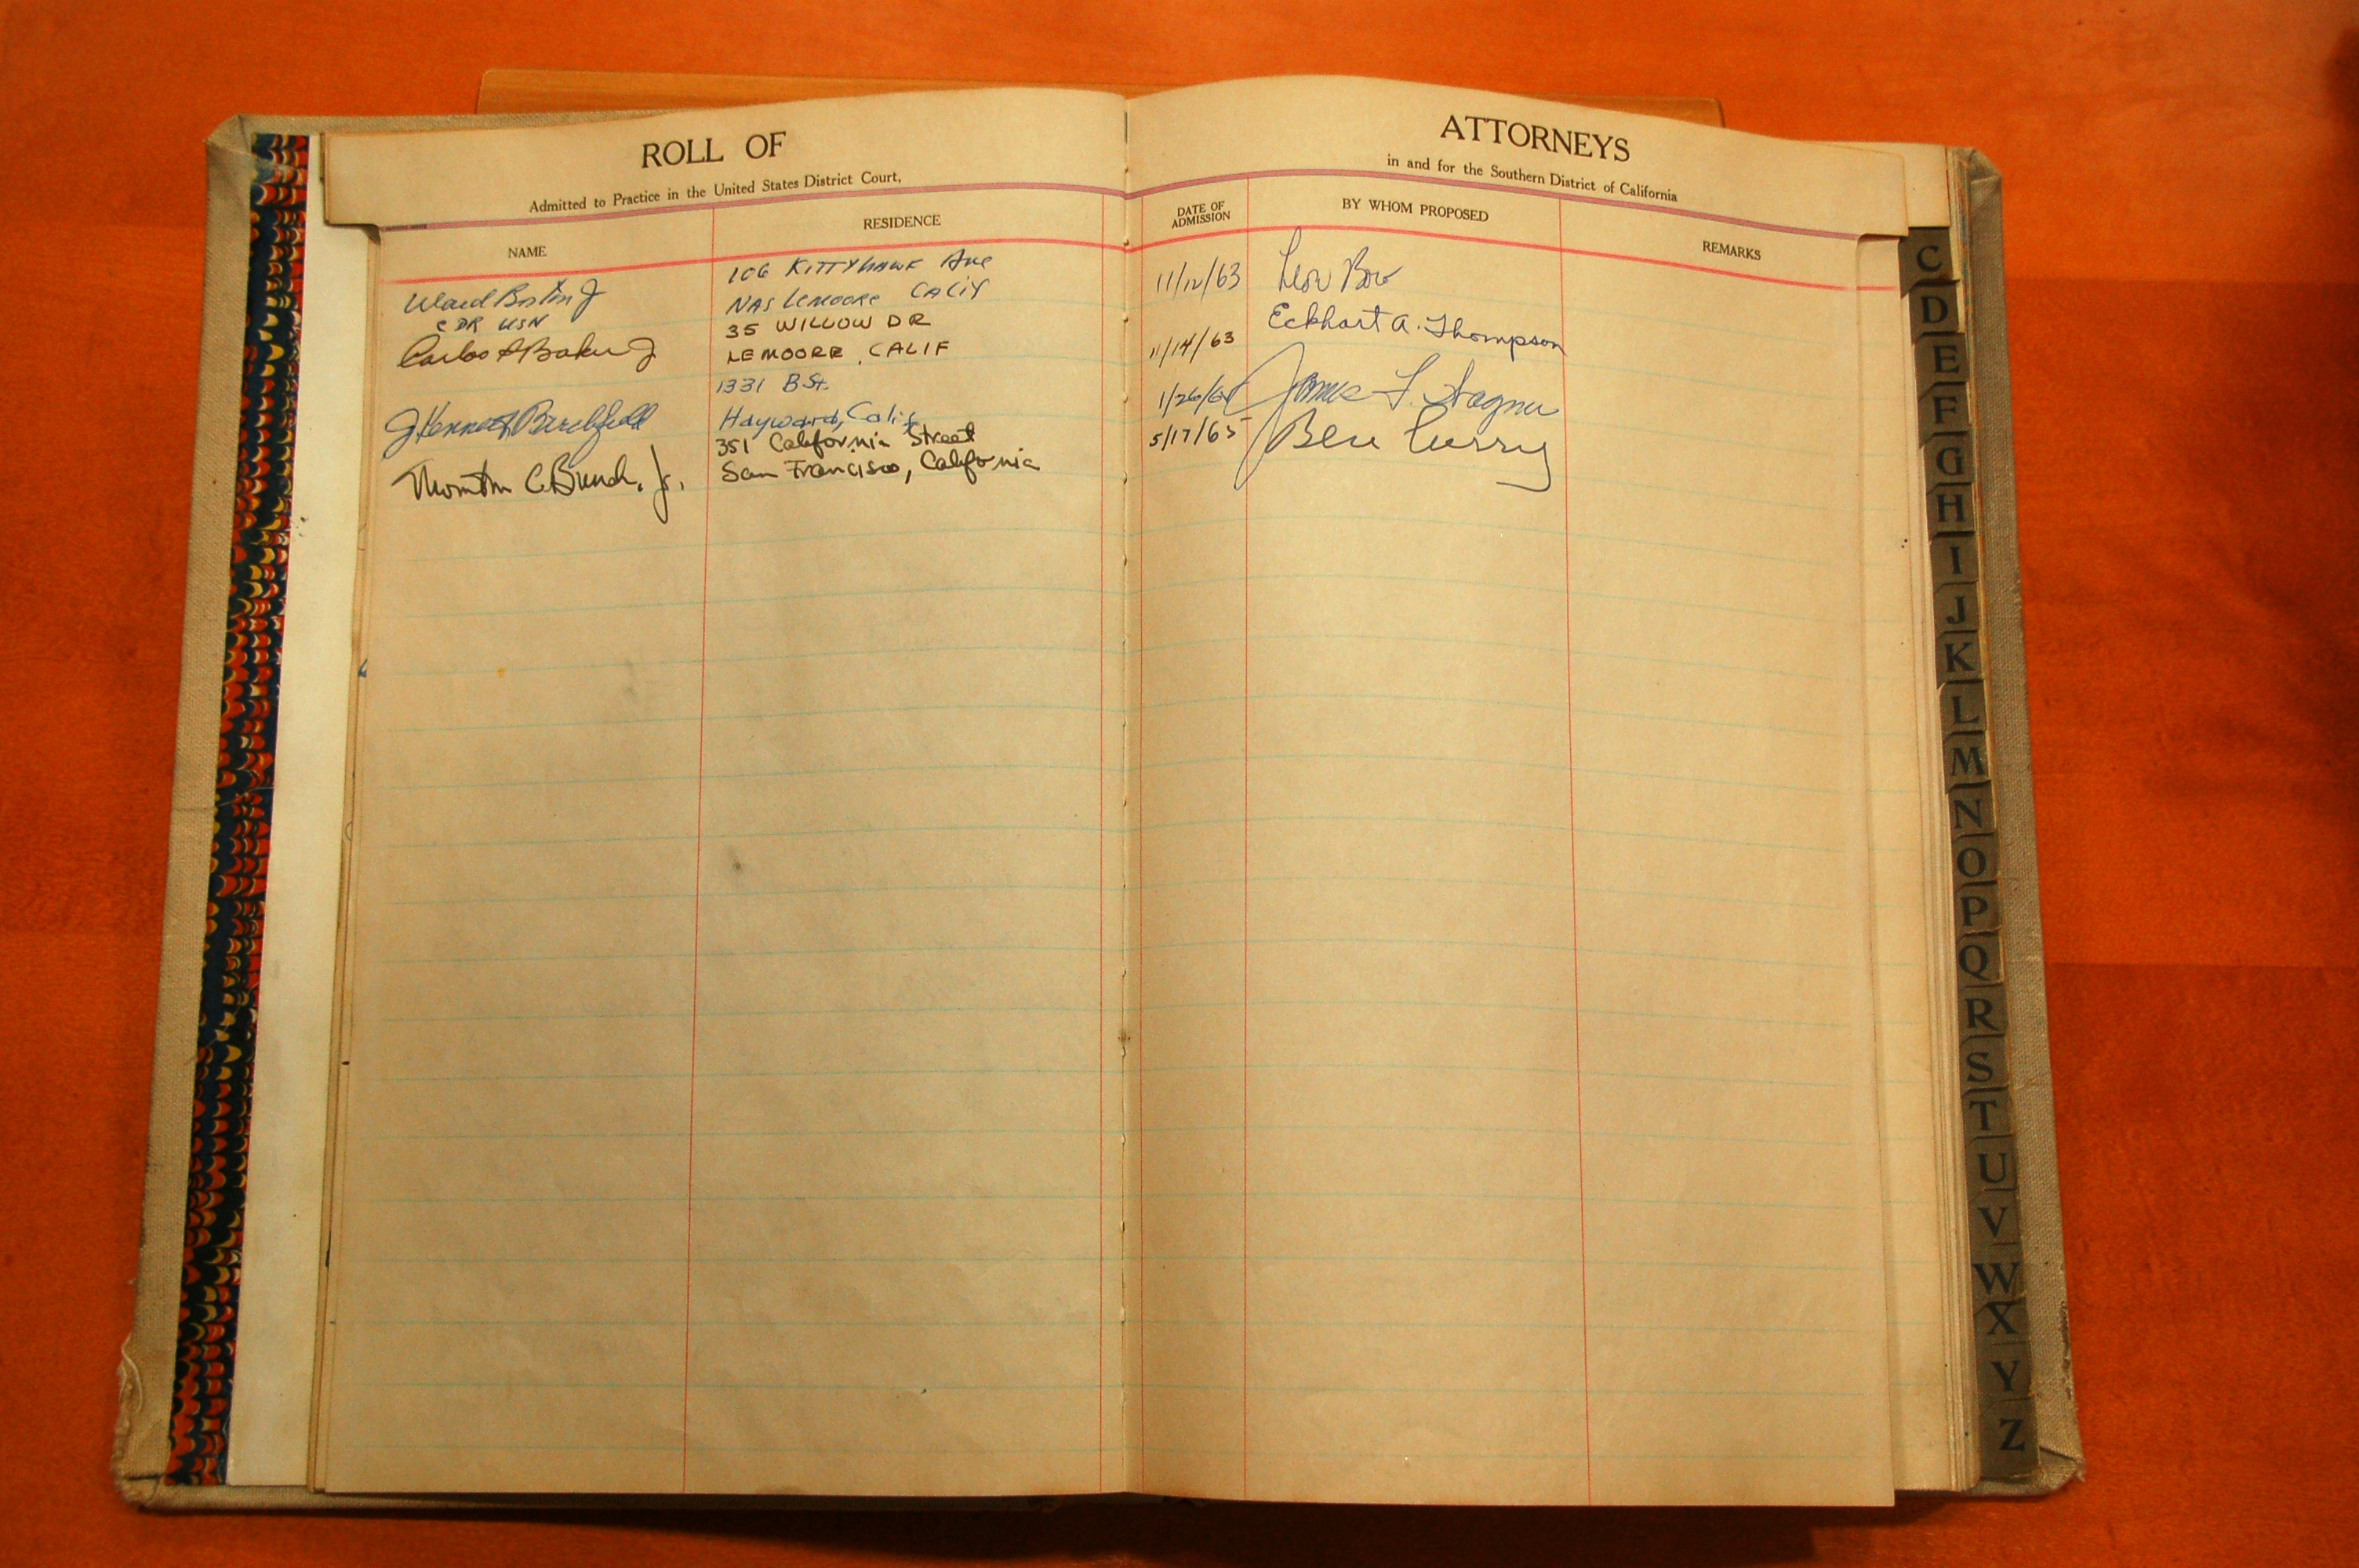 ROLL OF
ATTORNEYS
Admitted to Practice in the United States District Court,
in and for the Southern District of California
NAME
RESIDENCE
DATE OF
ADMISSION
BY WHOM PROPOSED
REMARKS
Ward Boston Jr
CDR USN
106 KITTYHAWK Ave
NAS Lemoore CALIF
11/12/63
35 WILLOW DR
LEMOORE, CALIF
11/14/63
Eckhart A. Thompson
J Kenneth Birchfield
1331 B St.
Hayward, Calif
1/26/
James F.
Thornton C Bunch, Jr.
351 California Street
San Francisco, California
5/17/65
Ben Curry
C
D
E
F
G
H
I
J
K
L
M
N
O
P
Q
R
S
T
U
V
W
X
Y
Z